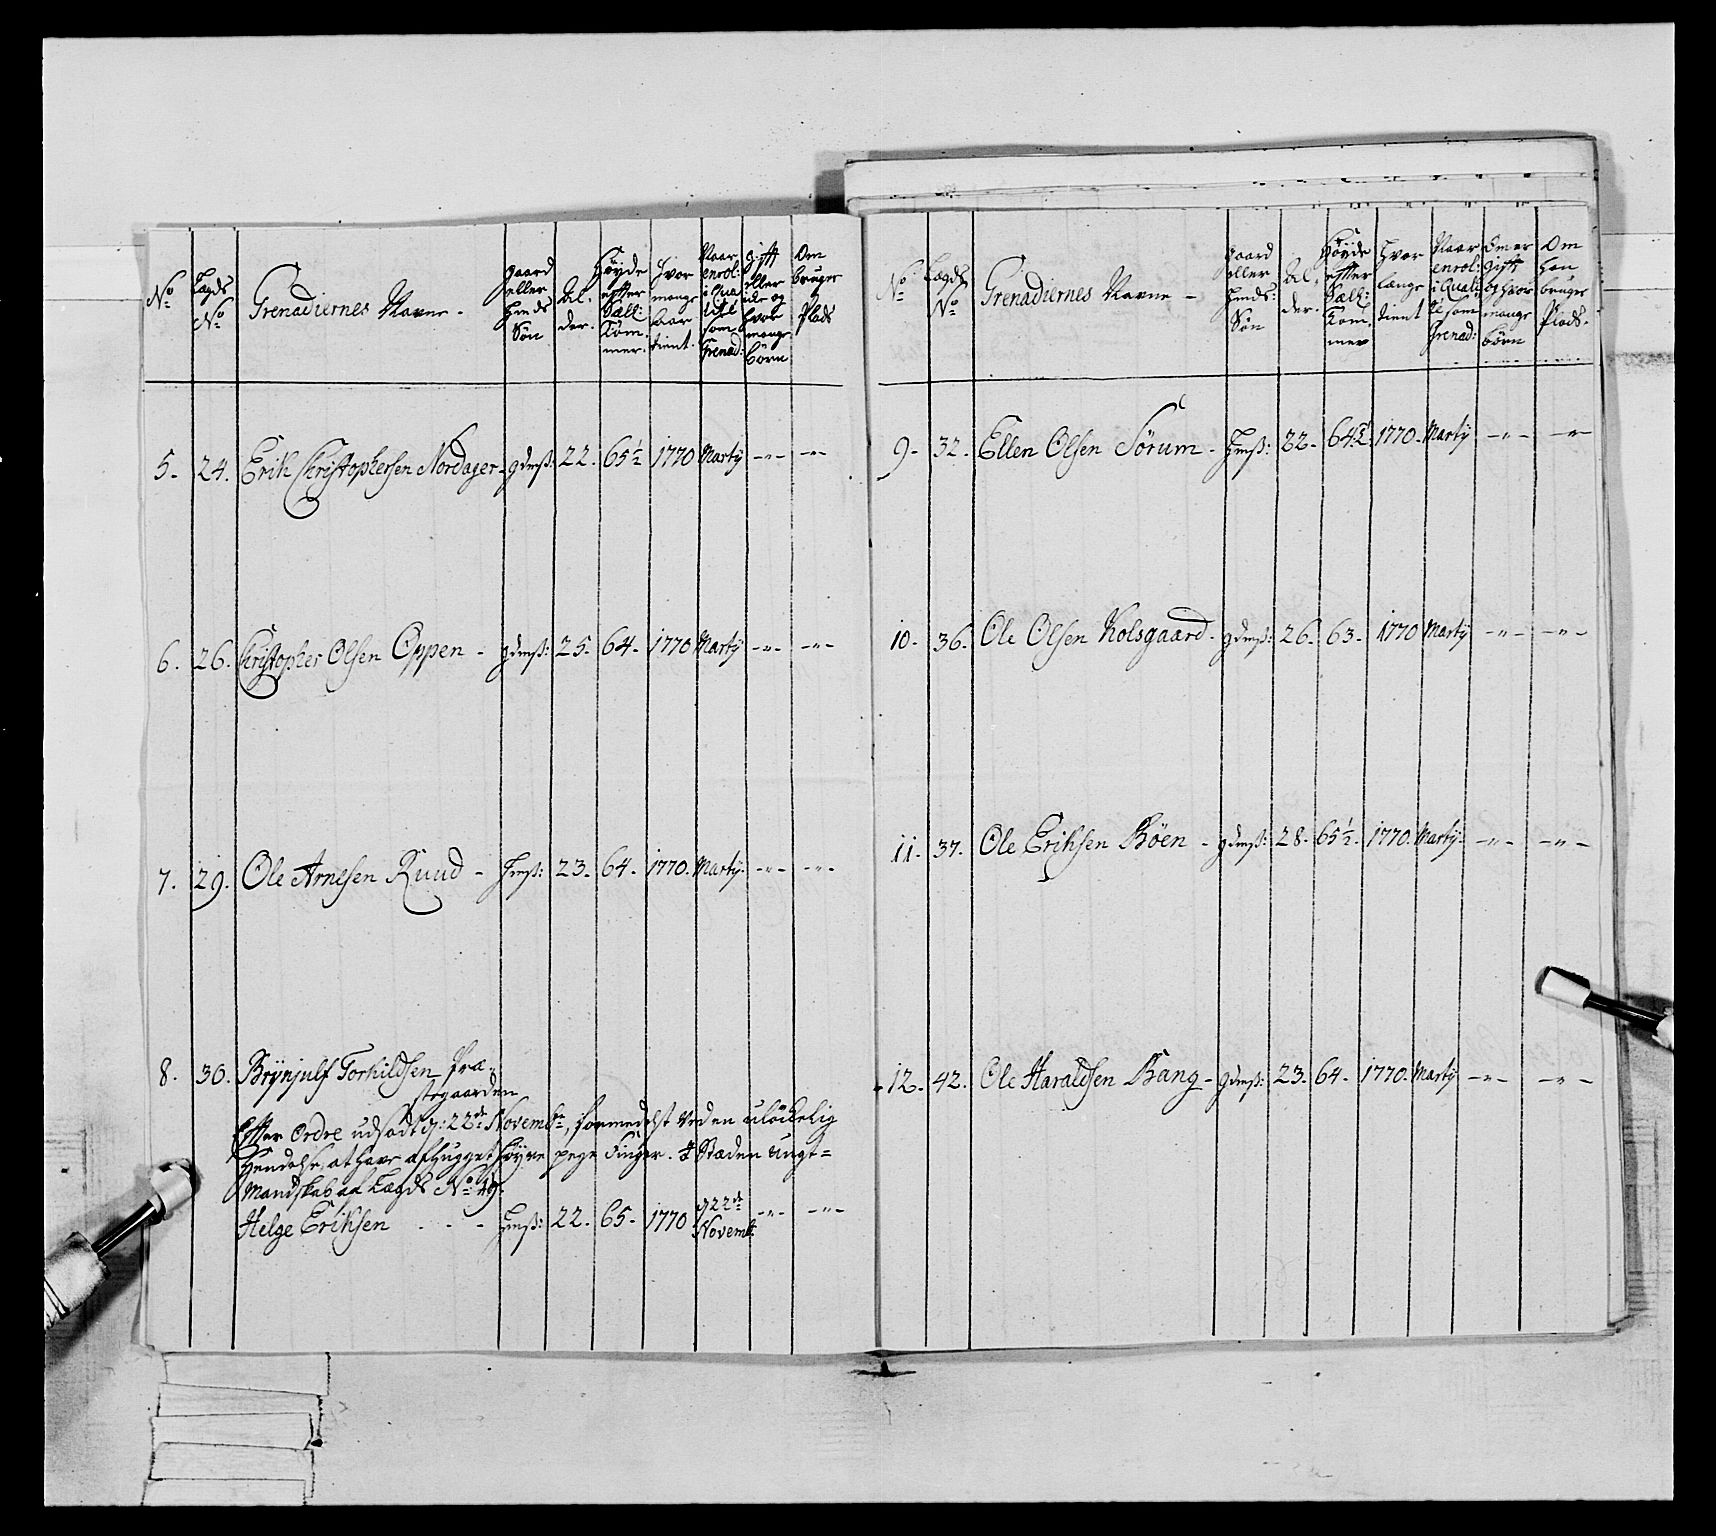 No
Lægds No
Grenadiernes Navne -
gaard eller Huuds Søn
Al- der.
Høyde effter Sæll: Tom- mer.
Hvor mange Aar tient.
Naar enrol: i Qua litet som Grenad:
gifft eller ude og hvor mange börn
Om bruger Plads
5. 24. Erik Christophersen Nordager - gdmß: 22. 65½ 1770 Marty -"- -"-
6. 26. Christopher Olsen Oppen - gdmß: 25. 64. 1770 Marty -"- -"-
7. 29. Ole Arnesen Ruud - Hmß: 23. 64. 1770. Marty. -"- -"-
8. 30. Brynjulf Torkildsen Præ-
stegaarden
Effter Ordre udsadt d: 22de Novembr, formedelst ved en ulöckelig
Hendelse, at have afhugget höyre pege Finger. I Stæden Ungt-
Mandskab af Lægds No 49.
Helge Eriksen - - - Hmß: 22. 65. 1770 d 22de Novemb: -"- -"-
No
Lægds No
Grenadiernes Navne -
gaard eller Huuds: Søn
Al- der.
Høyde effter Sæll: Tom- mer
Hvor længe tient
Naar enrol: i Quali te som Grenad:
Om er gifft og hvor mange börn
Om han bruger Plads.
9. 32. Ellen Olsen Sörum - Hmß: 22. 64¾ 1770. Marty -"- -"-
10. 36. Ole Olsen Kolsgaard - gdmß: 26. 63. 1770 Marty -"- -"-
11. 37. Ole Eriksen Böen - gdmß: 28. 65½. 1770. Marty. -"- -"-
12. 42. Ole Haraldsen Bang - gdmß: 23. 64. 1770. Marty -"- -"-